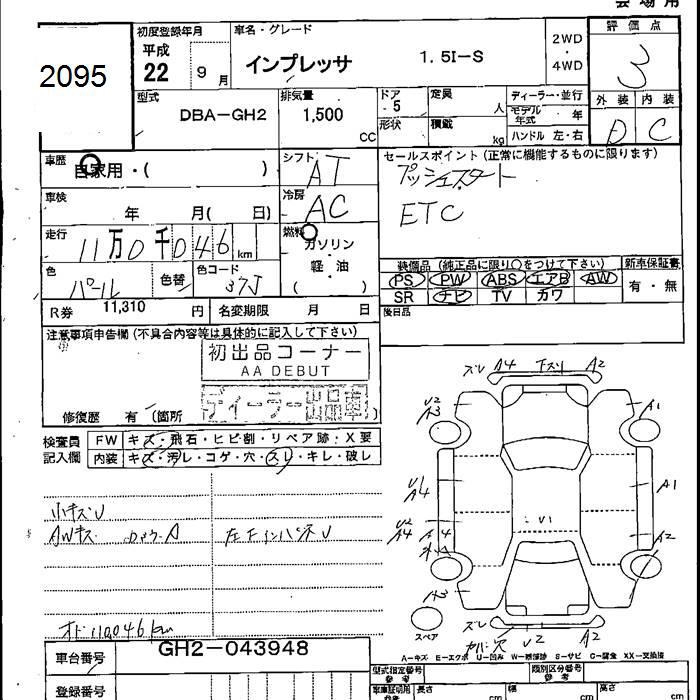 会場用
2095
初度登録年月
平成
22 9月
車名・グレード
インプレッサ 1.5I-S
2WD
・
4WD
評価点
3
型式
DBA-GH2
排気量
1,500
CC
ドア
5
形状
定員
人
積載
kg
ディーラー・並行
モデル年式 年
ハンドル 左・右
外装 内装
D C
車歴
自家用・( )
シフト
AT
セールスポイント(正常に機能するものに限ります)
プッシュスタート
ETC
車検
年 月( 日)
冷房
AC
走行
11万0千046km
燃料
ガソリン
軽・油
( )
色
パール
色替
色コード
37J
装備品(純正品に限り○をつけて下さい)
新車保証書
PS PW ABS エアB AW
SR ナビ TV カワ
有・無
後日品
R券 11,310 円
名変期限 月 日
注意事項申告欄(不具合内容等は具体的に記入して下さい)
初出品コーナー
AA DEBUT
ディーラー出品車
修復歴 有(箇所 )
検査員
記入欄
FW キズ・飛石・ヒビ割・リペア跡・X要
内装 キズ・汚レ・コゲ・穴・スレ・キレ・破レ
小キズU
AWキズ
左FインパネU
オド110046km
ズレ A4 下スリ A2
U2
A3
A1
U1
A4
A1
U2
A4
A4
U1
A2
A3
スペア
ズレ
カバー穴 U2 A2
A-キズ E-エクボ U-凹み W-補修跡 S-サビ C-腐食 XX-交換後
車台番号 GH2-043948
登録番号
型式指定番号
参考
類別区分番号
参考
車庫証明用
参考
長さ cm
幅 cm
高さ cm